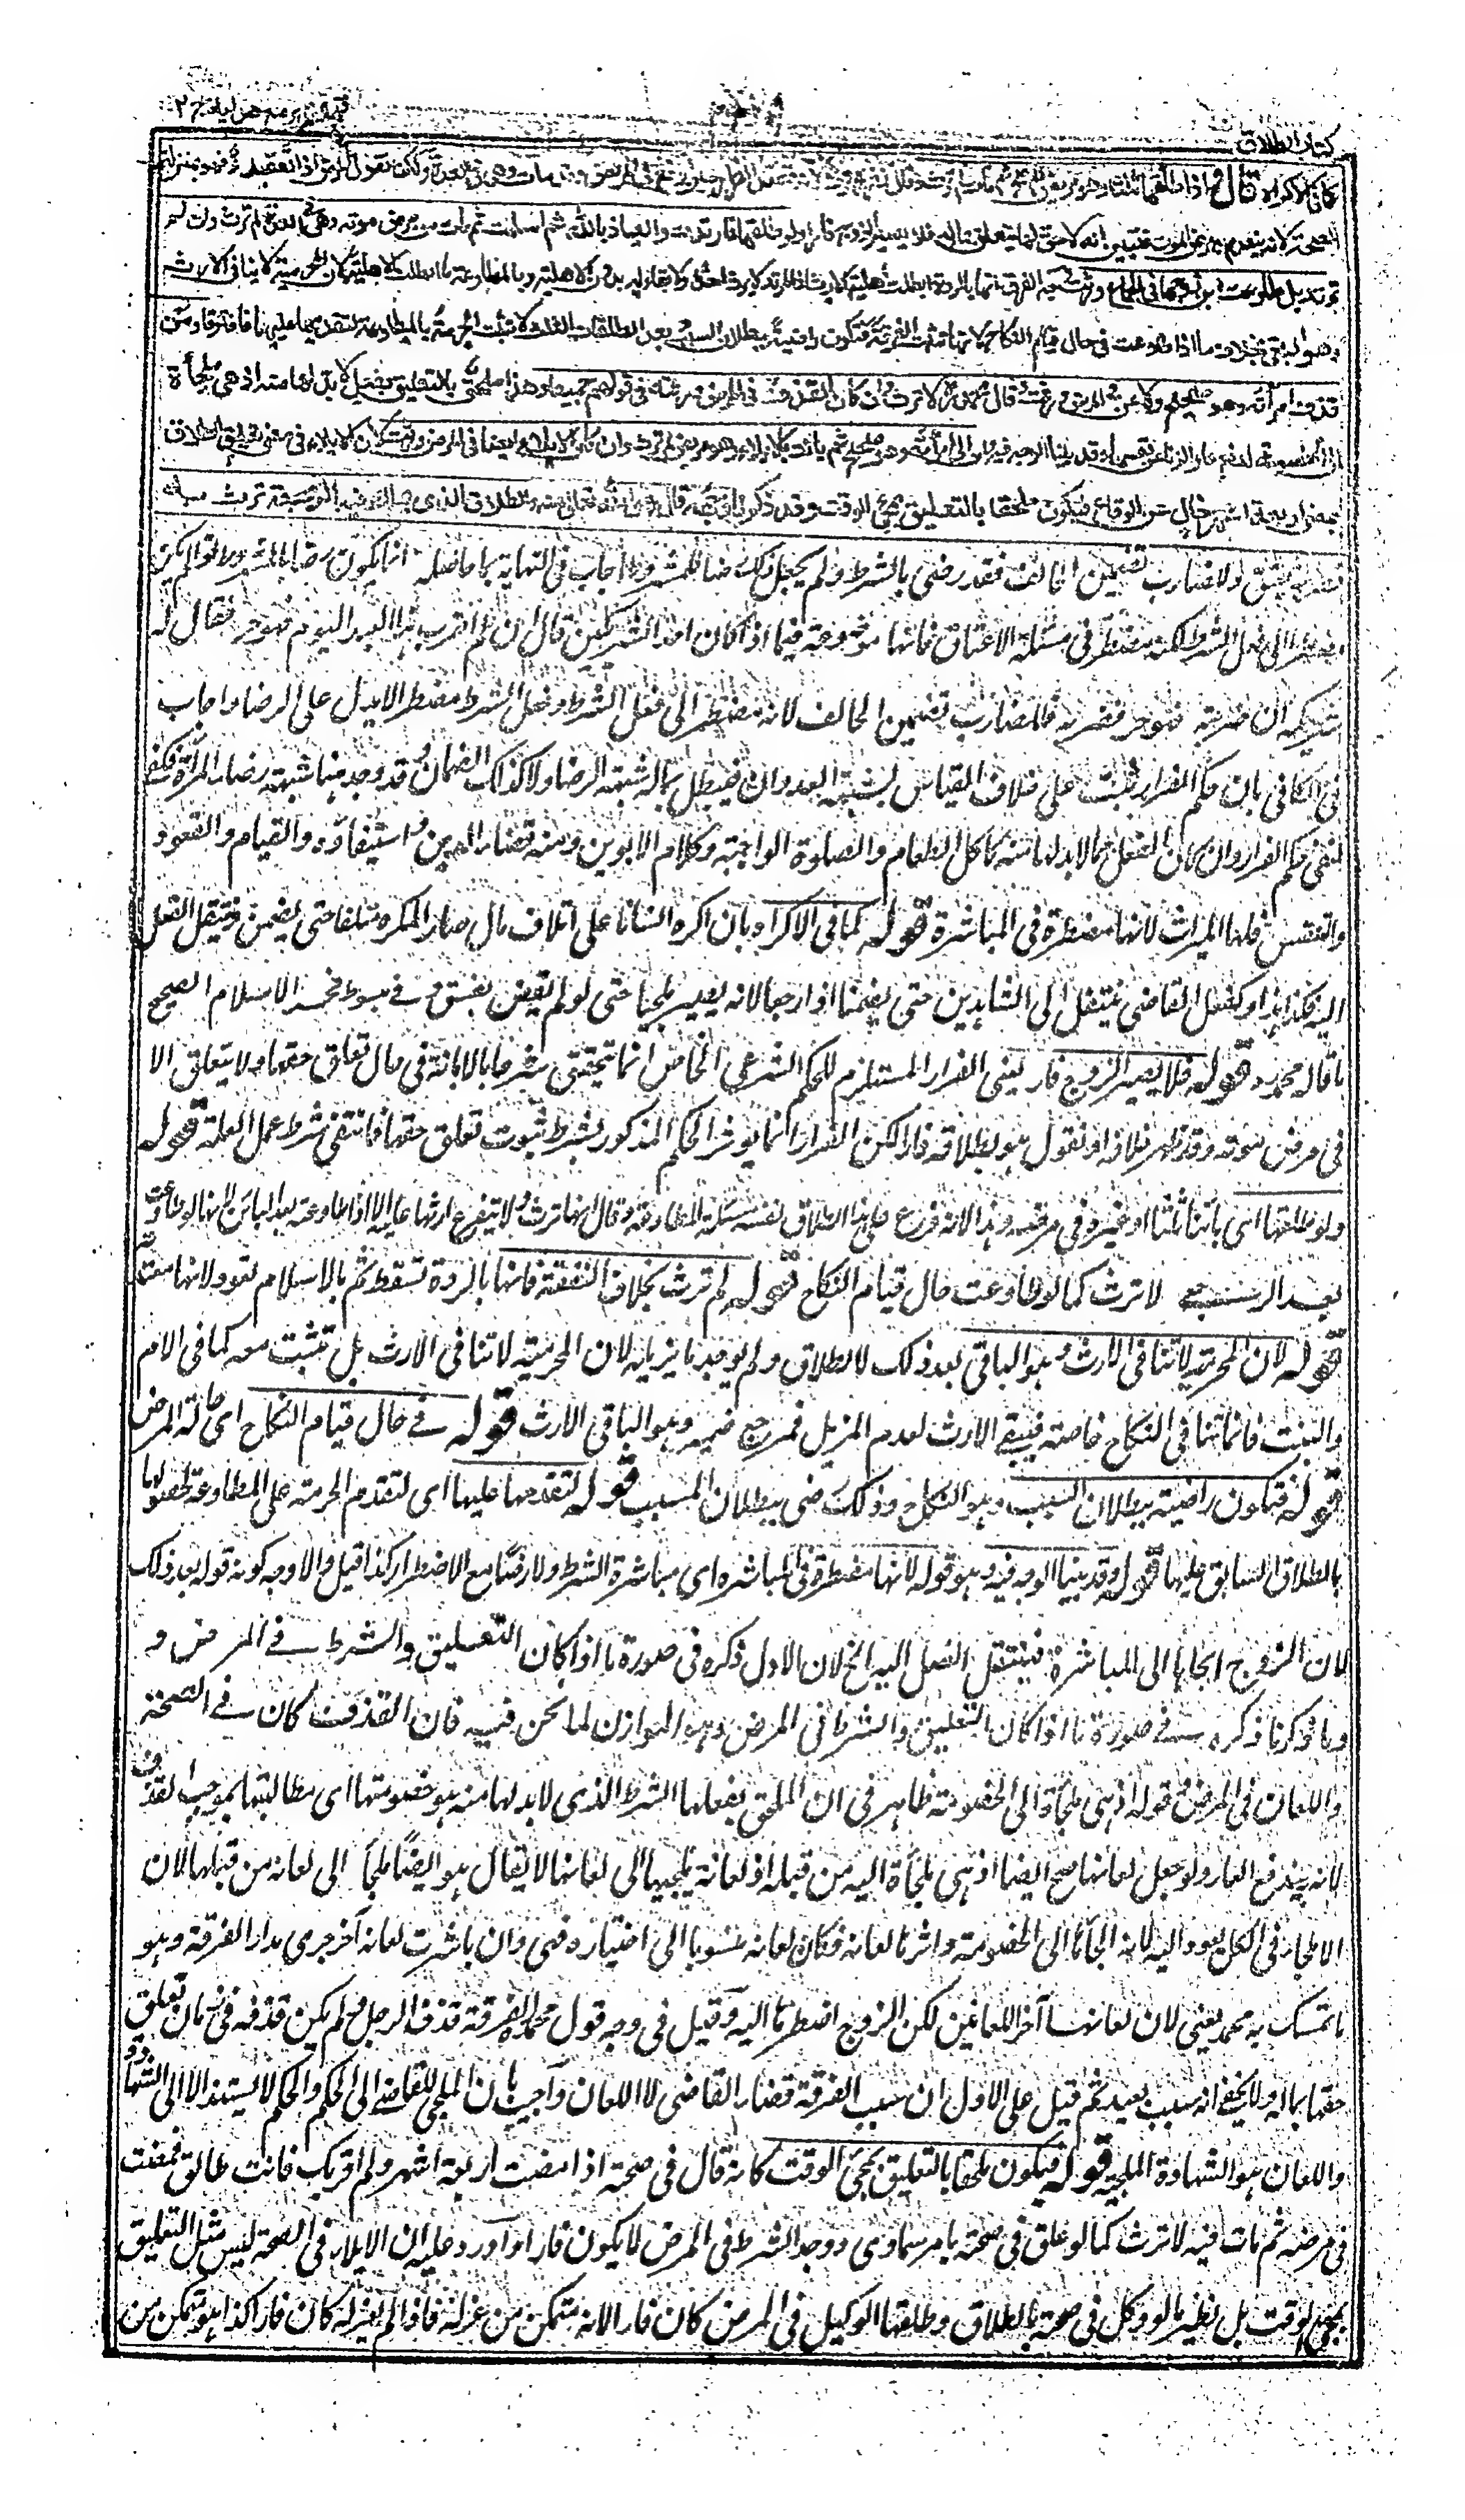 كتاب الطلاق
كما في الاكراه قال واذا طلقها ثلثا وهو مريض
الصحة لانه ينعدم به مرض الموت فتبين انه لا حق لها يتعلق بماله فلا يصير الزوج فارا ولو طلقها فارتدت والعياذ بالله ثم اسلمت ثم مات من مرض موته وهي في العدة لم ترث وان لم
ترتد بل طاوعت ابن زوجها في الجماع ورثت وجه الفرق انها بالردة ابطلت اهلية الارث اذ المرتد لا يرث احدا ولا بقاء له بدون الاهلية وبالمطاوعة ما ابطلت الاهلية لان المحرمية لا تنافي الارث
وهو الباقي بخلاف ما اذا طاوعت في حال قيام النكاح لانها تثبت الفرقة فتكون راضية ببطلان السبب وبعد الطلقات الثلث لا تثبت الحرمة بالمطاوعة لتقدمها عليها فافترقا ومن
قذف امرأته وهو صحيح ولاعن في المرض ورثت وقال محمد لا ترث وان كان القذف في المرض ورثته في قولهم جميعا وهذا ملحق بالتعليق بفعل لا بد لها منه اذ هي ملجأة
الى الخصومة لدفع عار الزنا عن نفسها وقد بينا الوجه فيه وان الى امرأته وهو صحيح ثم بانت بالايلاء وهو مريض لم ترث وان كان الايلاء ايضا في المرض ورثت لان الايلاء في معنى تعليق الطلاق
بمضي اربعة اشهر خال عن الوقاع فيكون ملحقا بالتعليق بمجئ الوقت وقد ذكرنا وجهه قال رضي الله تعالى عنه والطلاق الذي يملك فيه الرجعة ترث به
تضمين الحالف فقد رضي بالشرط ولم يجعل ذلك رضا بالمشروط اجاب في النهاية بما حاصله انما يكون رضا بالمشروط لو لم يكن
مضطرا الى فعل الشرط لكنه مضطر في مسئلة الاعتاق فانها موضوعة فيما اذا كان احد الشريكين قال ان لم اضرب هذا العبد اليوم فهو حر فقال له
شريكه ان ضربته فهو حر فضربه فللضارب تضمين الحالف لانه مضطر الى فعل الشرط وفعل الشرط مضطرا لا يدل على الرضا واجاب
في الكافي بان حكم الفرار يثبت على خلاف القياس لشبهة العدوان فيبطل بماله شبهة الرضا ولا كذلك الضمان وقد وجد هنا شبهة رضا المرأة فكفى
لنفي حكم الفرار وان كان الفعل مما لا بد لها منه كاكل الطعام والصلوة الواجبة وكلام الابوين ومنه قضاء الدين واستيفاؤه والقيام والقعود
والتنفس فلها الميراث لانها مضطرة في المباشرة قوله كما في الاكراه بان اكره انسانا على اتلاف مال صار المكره متلفا حتى يضمن فينتقل الفعل
اليه فكذا هذا وكفعل القاضي ينتقل الى الشاهدين حتى يضمنا اذا رجعا لانه يصير ملجيا حتى لو لم يقض يفسق وفي مبسوط فخر الاسلام الصحيح
ما قاله محمد قوله فلا يصير الزوج فارا يعني الفرار المستلزم للحكم الشرعي الخاص انما يتحقق شرعا بالابانة في حال تعلق حقها ولا يتعلق الا
في مرض موته وقد ظهر خلافه او نقول هو بطلاقه فار لكن الفرار انما يوثر الحكم المذكور بشرط ثبوت تعلق حقها فانتفى شرط عمل العلة قوله
ولو طلقها اي بائنا ثلثا او غيره في مرضه وهذا لانه فرع على هذا الطلاق نفسه مسئلة المطاوعة وقال انها ترث ولا يتفرع ارثها عليه الا اذا طاوعته بعد البائن لانها لو طاوعت
بعد الرجعي لا ترث كما لو طاوعت حال قيام النكاح قوله لم ترث بخلاف النفقة فانها بالردة تسقط ثم بالاسلام تعود لانها معتدته
قوله لان المحرمية لا تنافي الارث وهو الباقي بعد ذلك الطلاق ولم يوجد ما يزيله لان المحرمية لا تنافي الارث بل تثبت معه كما في الام
والبنت فانما تنافي النكاح خاصة فيبقى الارث لعدم المزيل فمرجع ضمير وهو الباقي الارث قوله في حال قيام النكاح اي حالة المرض
قوله فتكون راضية ببطلان السبب وهو النكاح وذلك رضى ببطلان المسبب قوله لتقدمها عليها اي لتقدم الحرمة على المطاوعة لحصولها
بالطلاق السابق عليها قوله وقد بينا الوجه فيه وهو قوله لانها مضطرة في المباشرة اي مباشرة الشرط ولا رضا مع الاضطرار كذا قيل والاوجه كونه قوله بعد ذلك
لان الزوج الجاها الى المباشرة فينتقل الفعل اليه الخ لان الاول ذكره في صورة ما اذا كان التعليق والشرط في المرض و
وما ذكرنا ذكره في صورة ما اذا كان التعليق والشرط في المرض وهو الموازن لما نحن فيه فان القذف كان في الصحة
واللعان في المرض وقوله اذ هي ملجأة الى الخصومة ظاهر في ان الملحق بفعلها الشرط الذي لا بد لها منه هو خصومتها اي مطالبتها بموجب القذف
لانه يندفع العار ولو جعل لعانها صح ايضا اذ هي ملجأة اليه من قبله اذ لعانه يلجيها الى لعانها لا يقال هو ايضا ملجأ الى لعانه من قبلها لان
الالجاء في الكل يعود اليه لانه الجأها الى الخصومة واثرها لعانه فكان لعانه منسوبا الى اختياره فهي وان باشرت لعانه آخر جزى مدار الفرقة وهو
ما تمسك به محمد يعني لان لعانها آخر اللعانين لكن الزوج اضطرها اليه وقيل في وجه قول محمد الفرقة قذف الرجل ولم يكن قذفه في زمان تعلق
حقها بماله ولا يخفى انه سبب بعيد ثم قيل على الاول ان سبب الفرقة قضاء القاضي لا اللعان واجيب بان الملجي للقاضي الى الحكم والحكم لا يستند الا الى الشهادة
واللعان هو الشهادة الملجية قوله فيكون ملحقا بالتعليق بمجئ الوقت كانه قال في صحته اذا مضت اربعة اشهر ولم اقربك فانت طالق فمضت
في مرضه ثم مات فيه لا ترث كما لو علق في صحته بامر سماوي ووجد الشرط في المرض لا يكون فارا واورد عليه ان الايلاء في الصحة ليس مثل التعليق
بمجئ الوقت بل نظير ما لو وكل في صحته بالطلاق وطلقها الوكيل في المرض كان فارا لانه متمكن من عزله فاذا لم يعزله كان فارا كذا هو متمكن من